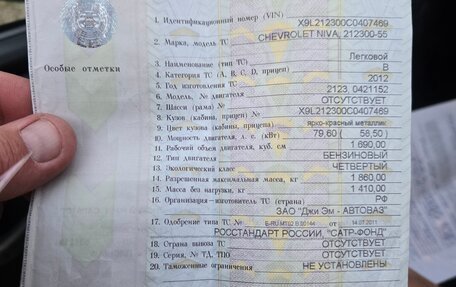 1. Идентификационный номер (VIN) X9L212300C0407469
2. Марка, модель ТС CHEVROLET NIVA, 212300-55
Особые отметки
3. Наименование (тип ТС) Легковой
4. Категория ТС (A, B, C, D, прицеп) B
5. Год изготовления ТС 2012
6. Модель, № двигателя 2123, 0421152
7. Шасси (рама) № ОТСУТСТВУЕТ
8. Кузов (кабина, прицеп) № X9L212300C0407469
9. Цвет кузова (кабины, прицепа) Ярко-красный металлик
10. Мощность двигателя, л. с. (кВт) 79,60 ( 58,50 )
11. Рабочий объем двигателя, куб. см 1 690,00
12. Тип двигателя БЕНЗИНОВЫЙ
13. Экологический класс ЧЕТВЕРТЫЙ
14. Разрешенная максимальная масса, кг 1 860,00
15. Масса без нагрузки, кг 1 410,00
16. Организация-изготовитель ТС (страна) РФ
ЗАО "Джи Эм - АВТОВАЗ"
17. Одобрение типа ТС № от 14.07.2011
РОССТАНДАРТ РОССИИ, "САТР-ФОНД"
18. Страна вывоза ТС ОТСУТСТВУЕТ
19. Серия, № ТД, ТПО ОТСУТСТВУЕТ
20. Таможенные ограничения НЕ УСТАНОВЛЕНЫ